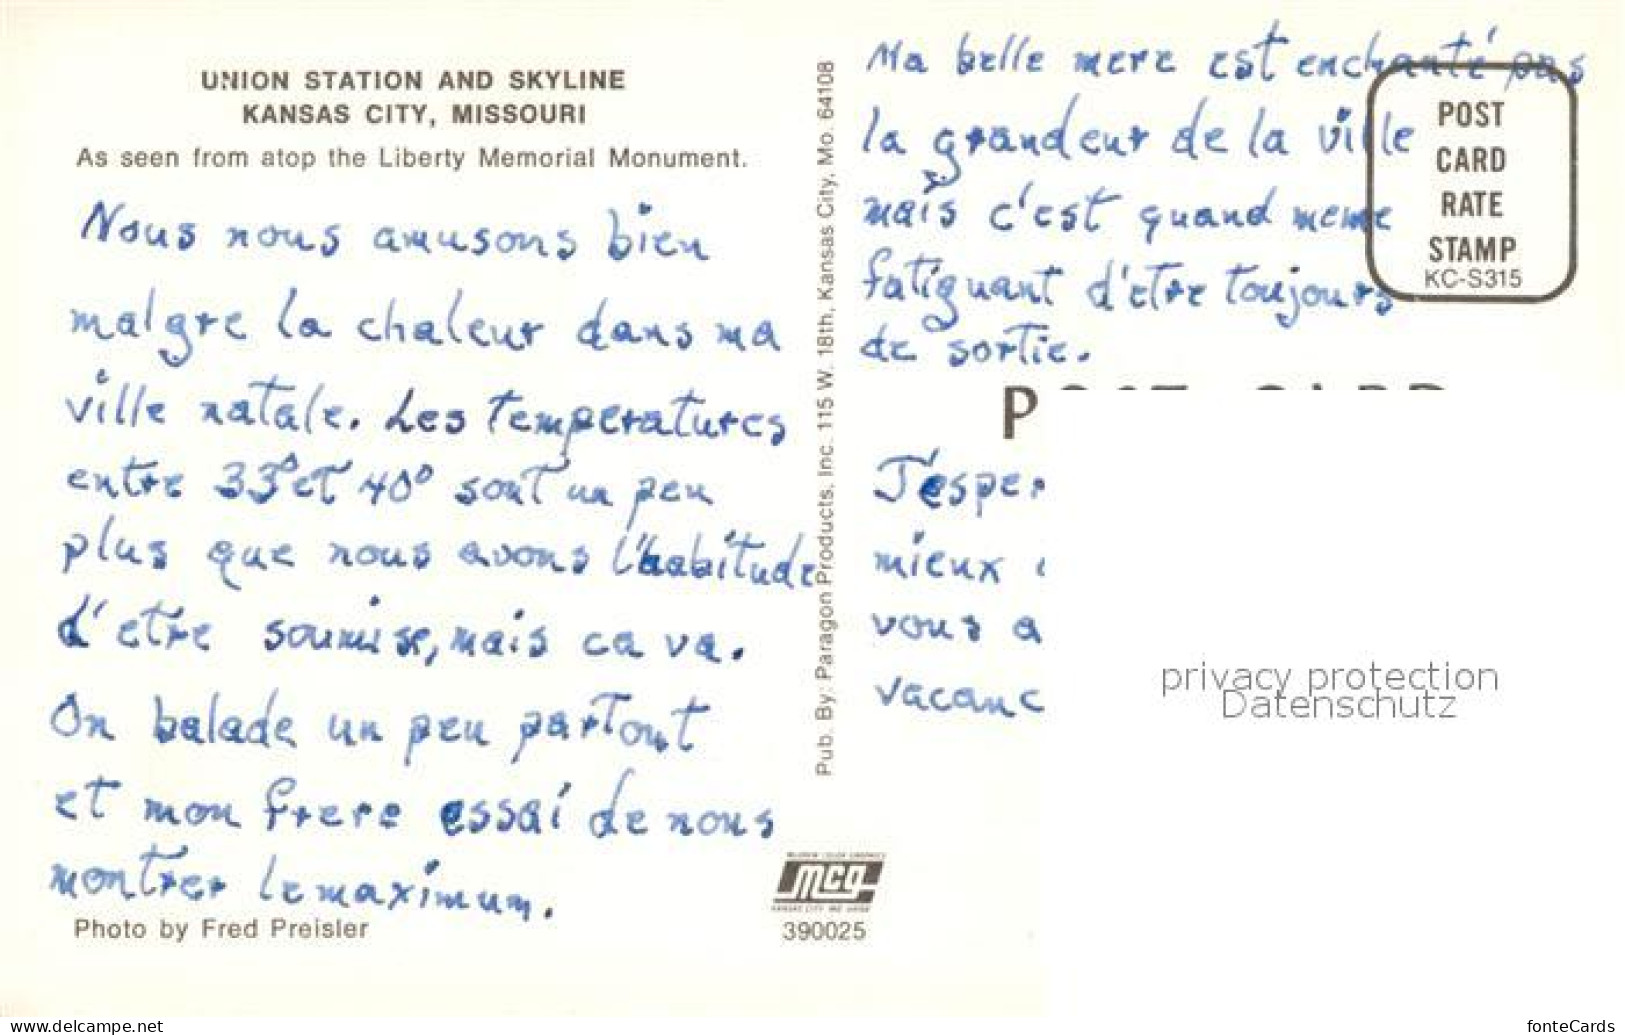 UNION STATION AND SKYLINE
KANSAS CITY, MISSOURI
As seen from atop the Liberty Memorial Monument.
Nous nous amusons bien
malgre la chaleur dans ma
ville natale. Les temperatures
entre 33° et 40° sont un peu
plus que nous avons l'habitude
d'etre soumise, mais ca va.
On balade un peu partout
et mon frere essai de nous
montrer le maximum.
Photo by Fred Preisler
Pub. By: Paragon Products, Inc. 115 W. 18th, Kansas City, Mo. 64108
mcg
390025
Ma belle mere est enchanté pas
la grandeur de la ville
mais c'est quand meme
fatiguant d'etre toujours
de sortie.
POST
CARD
RATE
STAMP
KC-S315
POST CARD
J'esper
mieux
vous a
vacanc
privacy protection
Datenschutz
www.delcampe.net
fonteCards